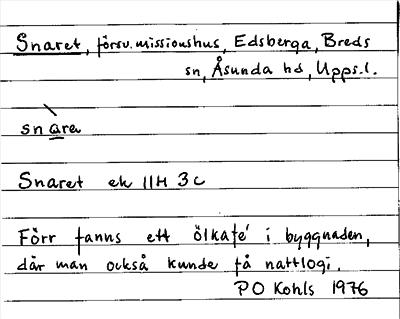 Snaret, försv. missionshus, Edsberga, Breds
sn, Åsunda hd, Upps.l.
snara
Snaret ek 11H 3c
Förr fanns ett ölkafé i byggnaden,
där man också kunde få nattlogi.
PO Kohls 1976